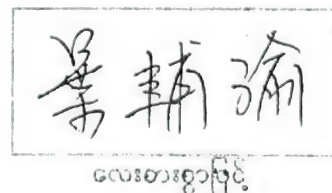 葉輔瑜
လေးစားစွာဖြင့်